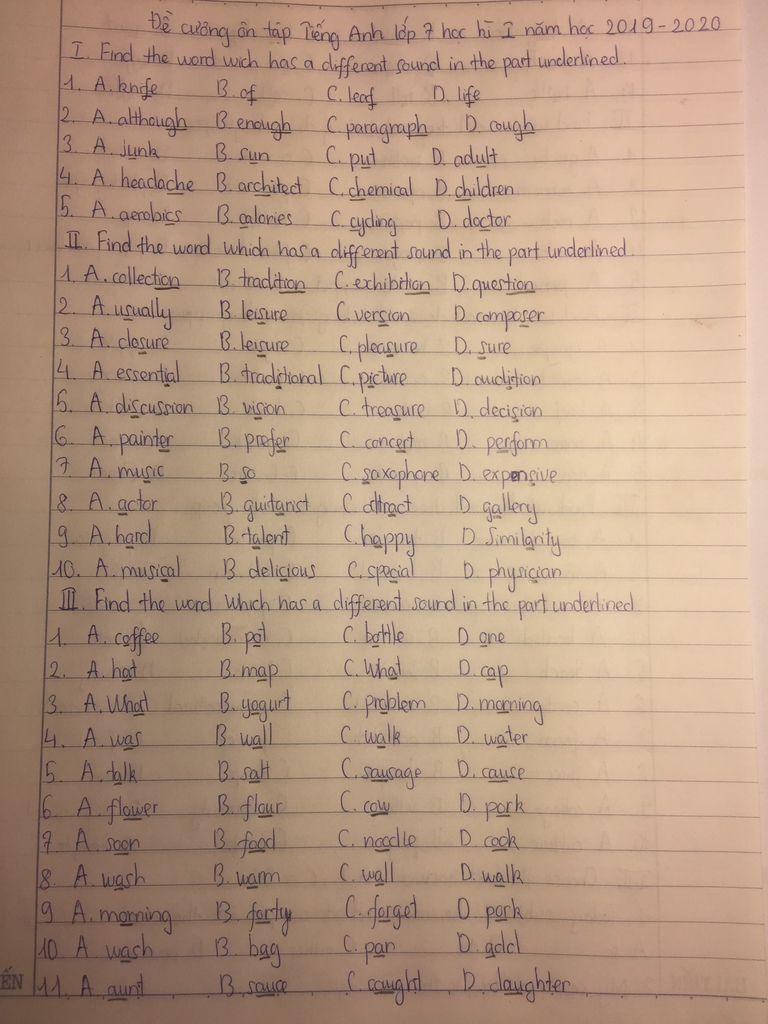 Đề cương ôn tập Tiếng Anh lớp 7 học kì I năm học 2019-2020
I. Find the word wich has a different sound in the part underlined.
1. A. knife B. of C. leaf D. life
2. A. although B. enough C. paragraph D. cough
3 A. junk B. sun C. put D. adult
4. A. headache B. architect C. chemical D. children
5. A. aerobics B. calories C. cycling D. doctor
II. Find the word which has a different sound in the part underlined.
1. A. collection B. tradition C. exhibition D. question
2. A. usually B. leisure C. version D. composer
3. A. closure B. leisure C. pleasure D. sure
4. A. essential B. traditional C. picture D. audition
5. A. discussion B. vision C. treasure D. decision
6. A. painter B. prefer C. concert D. perform
7. A. music B. so C. saxophone D. expensive
8. A. actor B. guitarist C. attract D. gallery
9. A. hard B. talent C. happy D. Similarity
10. A. musical B. delicious C. special D. physician
III. Find the word which has a different sound in the part underlined.
1. A. coffee B. pot C. bottle D. one
2. A. hat B. map C. What D. cap
3. A. What B. yogurt C. problem D. morning
4. A. was B. wall C. walk D. water
5 A. talk B. salt C. sausage D. cause
6 A. flower B. flour C. cow D. pork
7 A. soon B. food C. noodle D. cook
8 A. wash B. warm C. wall D. walk
9 A. morning B. forty C. forget D. pork
10 A. wash B. bag C. pan D. add
ẾN 11. A. aunt B. sauce C. caught D. daughter